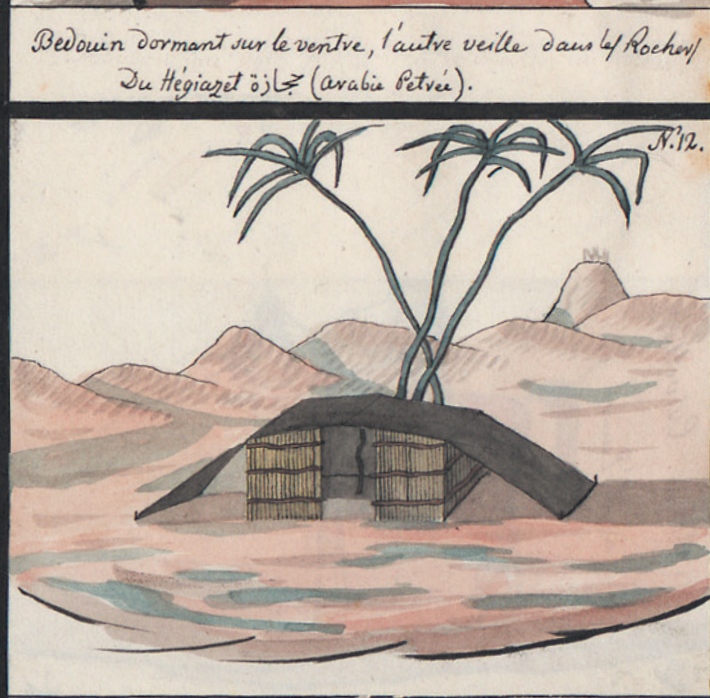 Bedouin dormant sur le ventre, l'autre veille dans les Rochers
Du Hégiazet حجازة (arabie Petrée).
N.º 12.